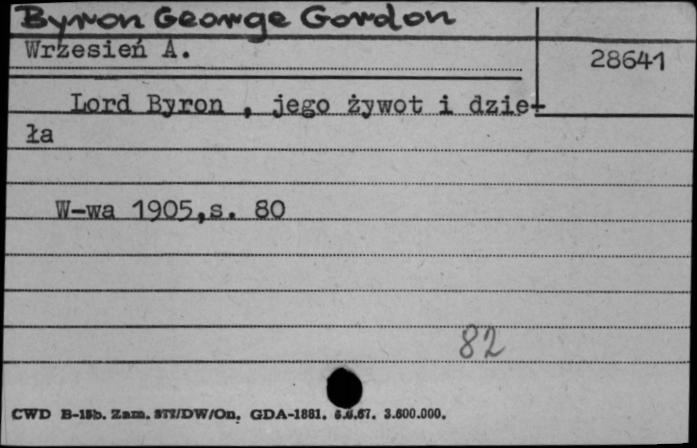 Byron George Gordon
Wrzesień A.
28641
Lord Byron , jego żywot i dzie-
ła
W-wa 1905,s. 80
82
CWD B-15b. Zam. /DW/On. GDA-1881. 67. 3.600.000.